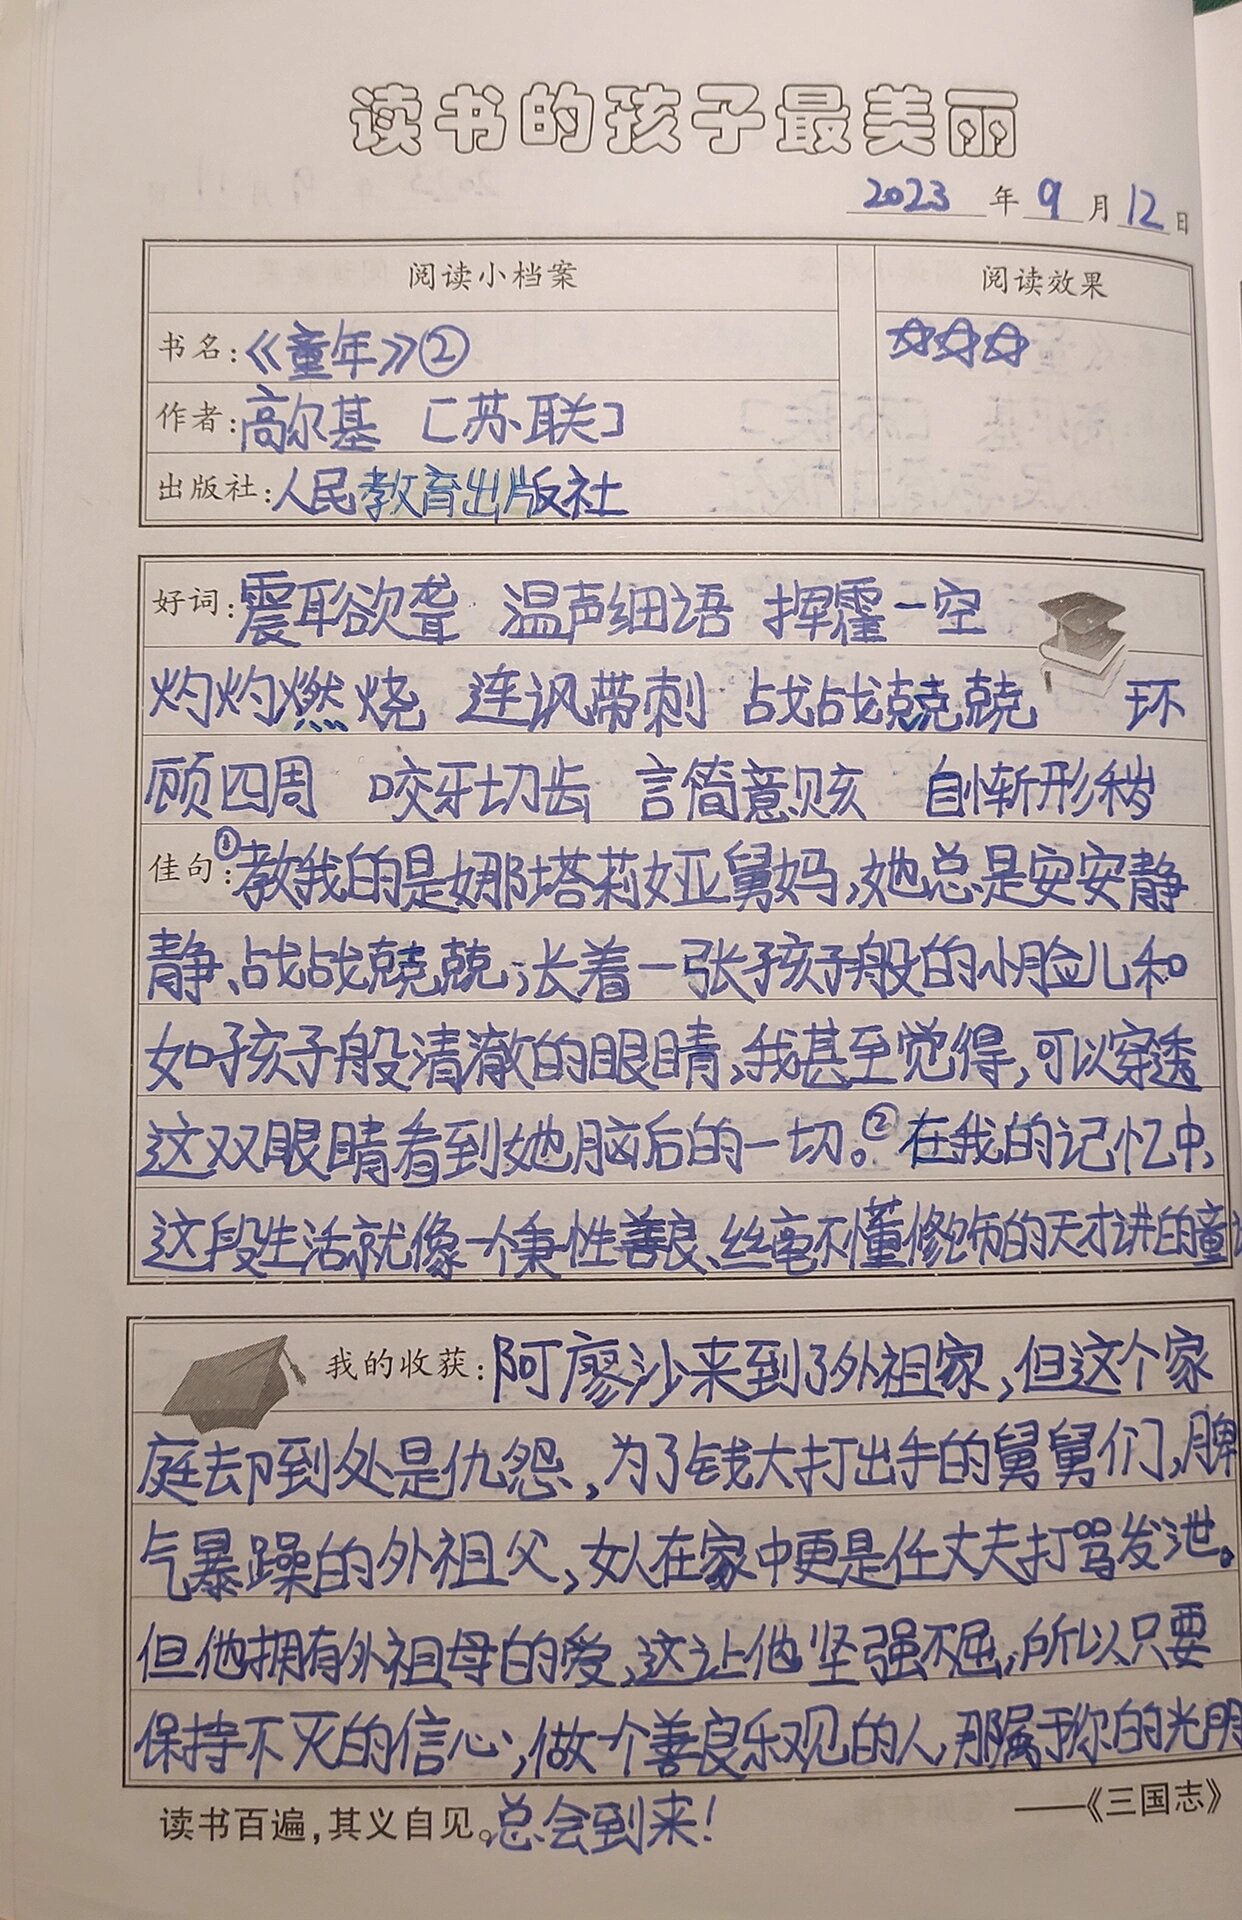 读书的孩子最美丽
2023年9月12日
阅读小档案 阅读效果
书名:《童年》② ☆☆☆
作者:高尔基 [苏联]
出版社:人民教育出版社
好词:震耳欲聋 温声细语 挥霍一空
灼灼燃烧 连讽带刺 战战兢兢 环
顾四周 咬牙切齿 言简意赅 自惭形秽
佳句:①教我的是娜塔莉娅舅妈,她总是安安静
静、战战兢兢;长着一张孩子般的小脸儿和
如孩子般清澈的眼睛,我甚至觉得,可以穿透
这双眼睛看到她脑后的一切。②在我的记忆中,
这段生活就像一个秉性善良、丝毫不懂修饰的天才讲的童
我的收获:阿廖沙来到了外祖家,但这个家
庭却到处是仇怨,为了钱大打出手的舅舅们,脾
气暴躁的外祖父,女人在家中更是任丈夫打骂发泄。
但他拥有外祖母的爱,这让他坚强不屈,所以只要
保持不灭的信心,做一个善良乐观的人,那属于你的光明
总会到来!
读书百遍,其义自见。 ——《三国志》